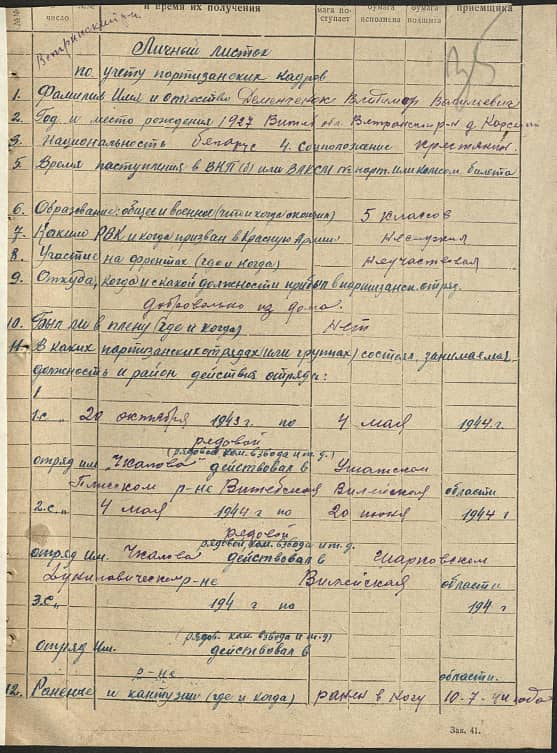 число
и время их получения
мага по-
ступает
бумага
исполнена
бумага
подшита
приемщика
Ветринский р-н
Личный листок
по учету партизанских кадров
1. Фамилия Имя и отчество Дементенок Владимир Васильевич
2. Год и место рождения 1927 Витеб. обл. Ветринский р-н д.
3. Национальность беларус 4. Соцположение крестьянин.
5. Время поступления в ВКП(б) или ВЛКСМ № парт. или комсом. билета
6. Образование: общее и военное (что и когда окончил) 5 классов
7. Каким РВК и когда призван в Красную Армию Неслужил
8. Участие на фронтах (где и когда) Неучаствовал
9. Откуда, когда и с какой должности прибыл в партизанск. отряд.
Добровольно из дома.
10. Был ли в плену (где и когда) Нет
11. В каких партизанских отрядах (или группах) состоял, занимаемая
должность и район действия отряда:
1.с " 20 октября 1943 г. по 4 мая 1944 г.
рядовой
(рядовой, ком. взвода и т. д.)
отряд им. "Чкалова" действовал в Ушатском
Плисском р-не Витебская Вилейская области
2.с." 4 мая 1944 г по 20 июня 1944 г
рядовой
рядовой, ком. взвода и т. д.
отряд Им. Чкалова действовал в Шарковском
Дуниловическом р-не Вилейская области
3.с" 194 г по 194 г
(рядов. ком. взвода и т. д)
отряд Им. действовал в
р-не области.
12. Ранение и кантузии (где и когда) ранен в ногу 10-7-44 года
Зак. 41.